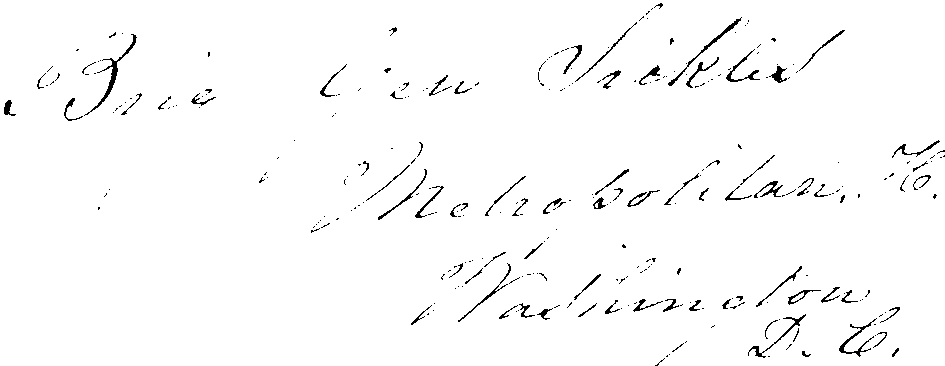 Brig Gen Sickles
Metropolitan. H.
Washington
D. C.